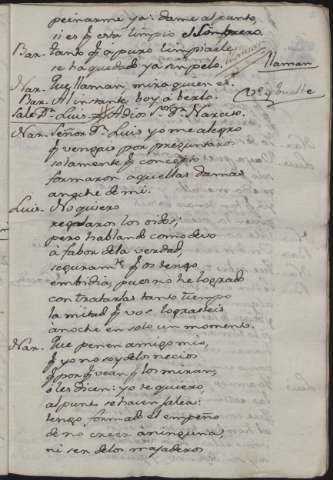 peinarme ya: dame al punto,
si es q̃ está limpio el Sombrero.
Bar. tanto q̃ a puro limpiarle
se ha quedado ya sin pelo. llaman
Nar. Que llaman, mira quien es.
Bar. Al instante boy a berlo. vase y buelve
Sale Dn. Luis. A Dios Sr. Dn. Narciso.
Nar. Señor Dn. Luis yo me alegro
q̃ vengais por preguntaros
solamente q̃ concepto
formaron aquellas damas
anoche de mi.
Luis. No quiero
regalaros los oidos;
pero hablando como devo
á fabor de la verdad,
seguramte. q̃ os tengo
embidia, pues no he logrado
con tratarlas tanto tiempo
la mitad q̃ vos lograsteis
anoche en solo un momento.
Nar. Que penen amigo mio,
q̃ yo no soy de los necios
q̃ por q̃ vean q̃ los miran,
ó les dicen: yo te quiero,
al punto se hacen jalea:
tengo formado el empeño
de no creer á ninguna,
ni ser de los majaderos